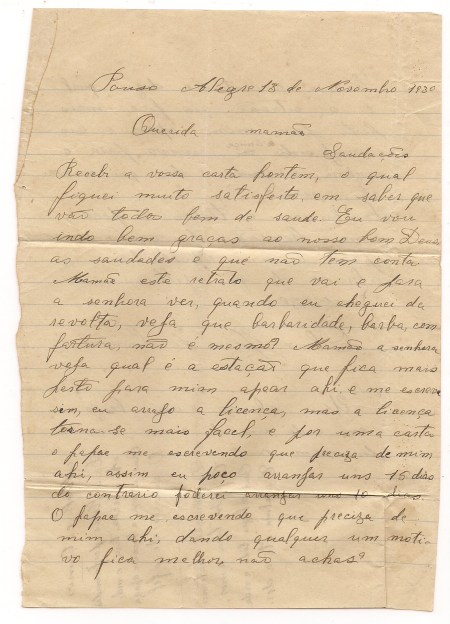 Pouso Alegre 18 de Novembro 1930
Querida mamão
Saudações
Recebi a vossa carta hontem, o qual
fiquei muito satisfeito, em saber que
vão todos bem de saude. Eu vou
indo bem graças ao nosso bom Deus
as saudades e que não tem conta
Mamão este retrato que vai e para
a senhora ver, quando eu cheguei da
revolta, veja que barbaridade, barba, com
fartura, não é mesmo? Mamão a senhora
veja qual é a estação que fica mais
perto para mim apear ahi e me escreve
sim, eu arrajo a licença, mas a licença
torna se mais facel, e por uma carta
o papae me escrevendo que preciza de mim
ahi, assim eu poço arranjar uns 15 dias
do contrario poderei arranjar uns 10 dias.
O papae me escrevendo que preciza de
mim ahi, dando qualquer um moti
vo fica melhor, não achas?